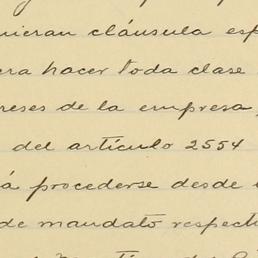 uieran cláusula esp
era hacer toda clase
reses de la empresa,
del artículo 2554
á procederse desde
de mandato respect